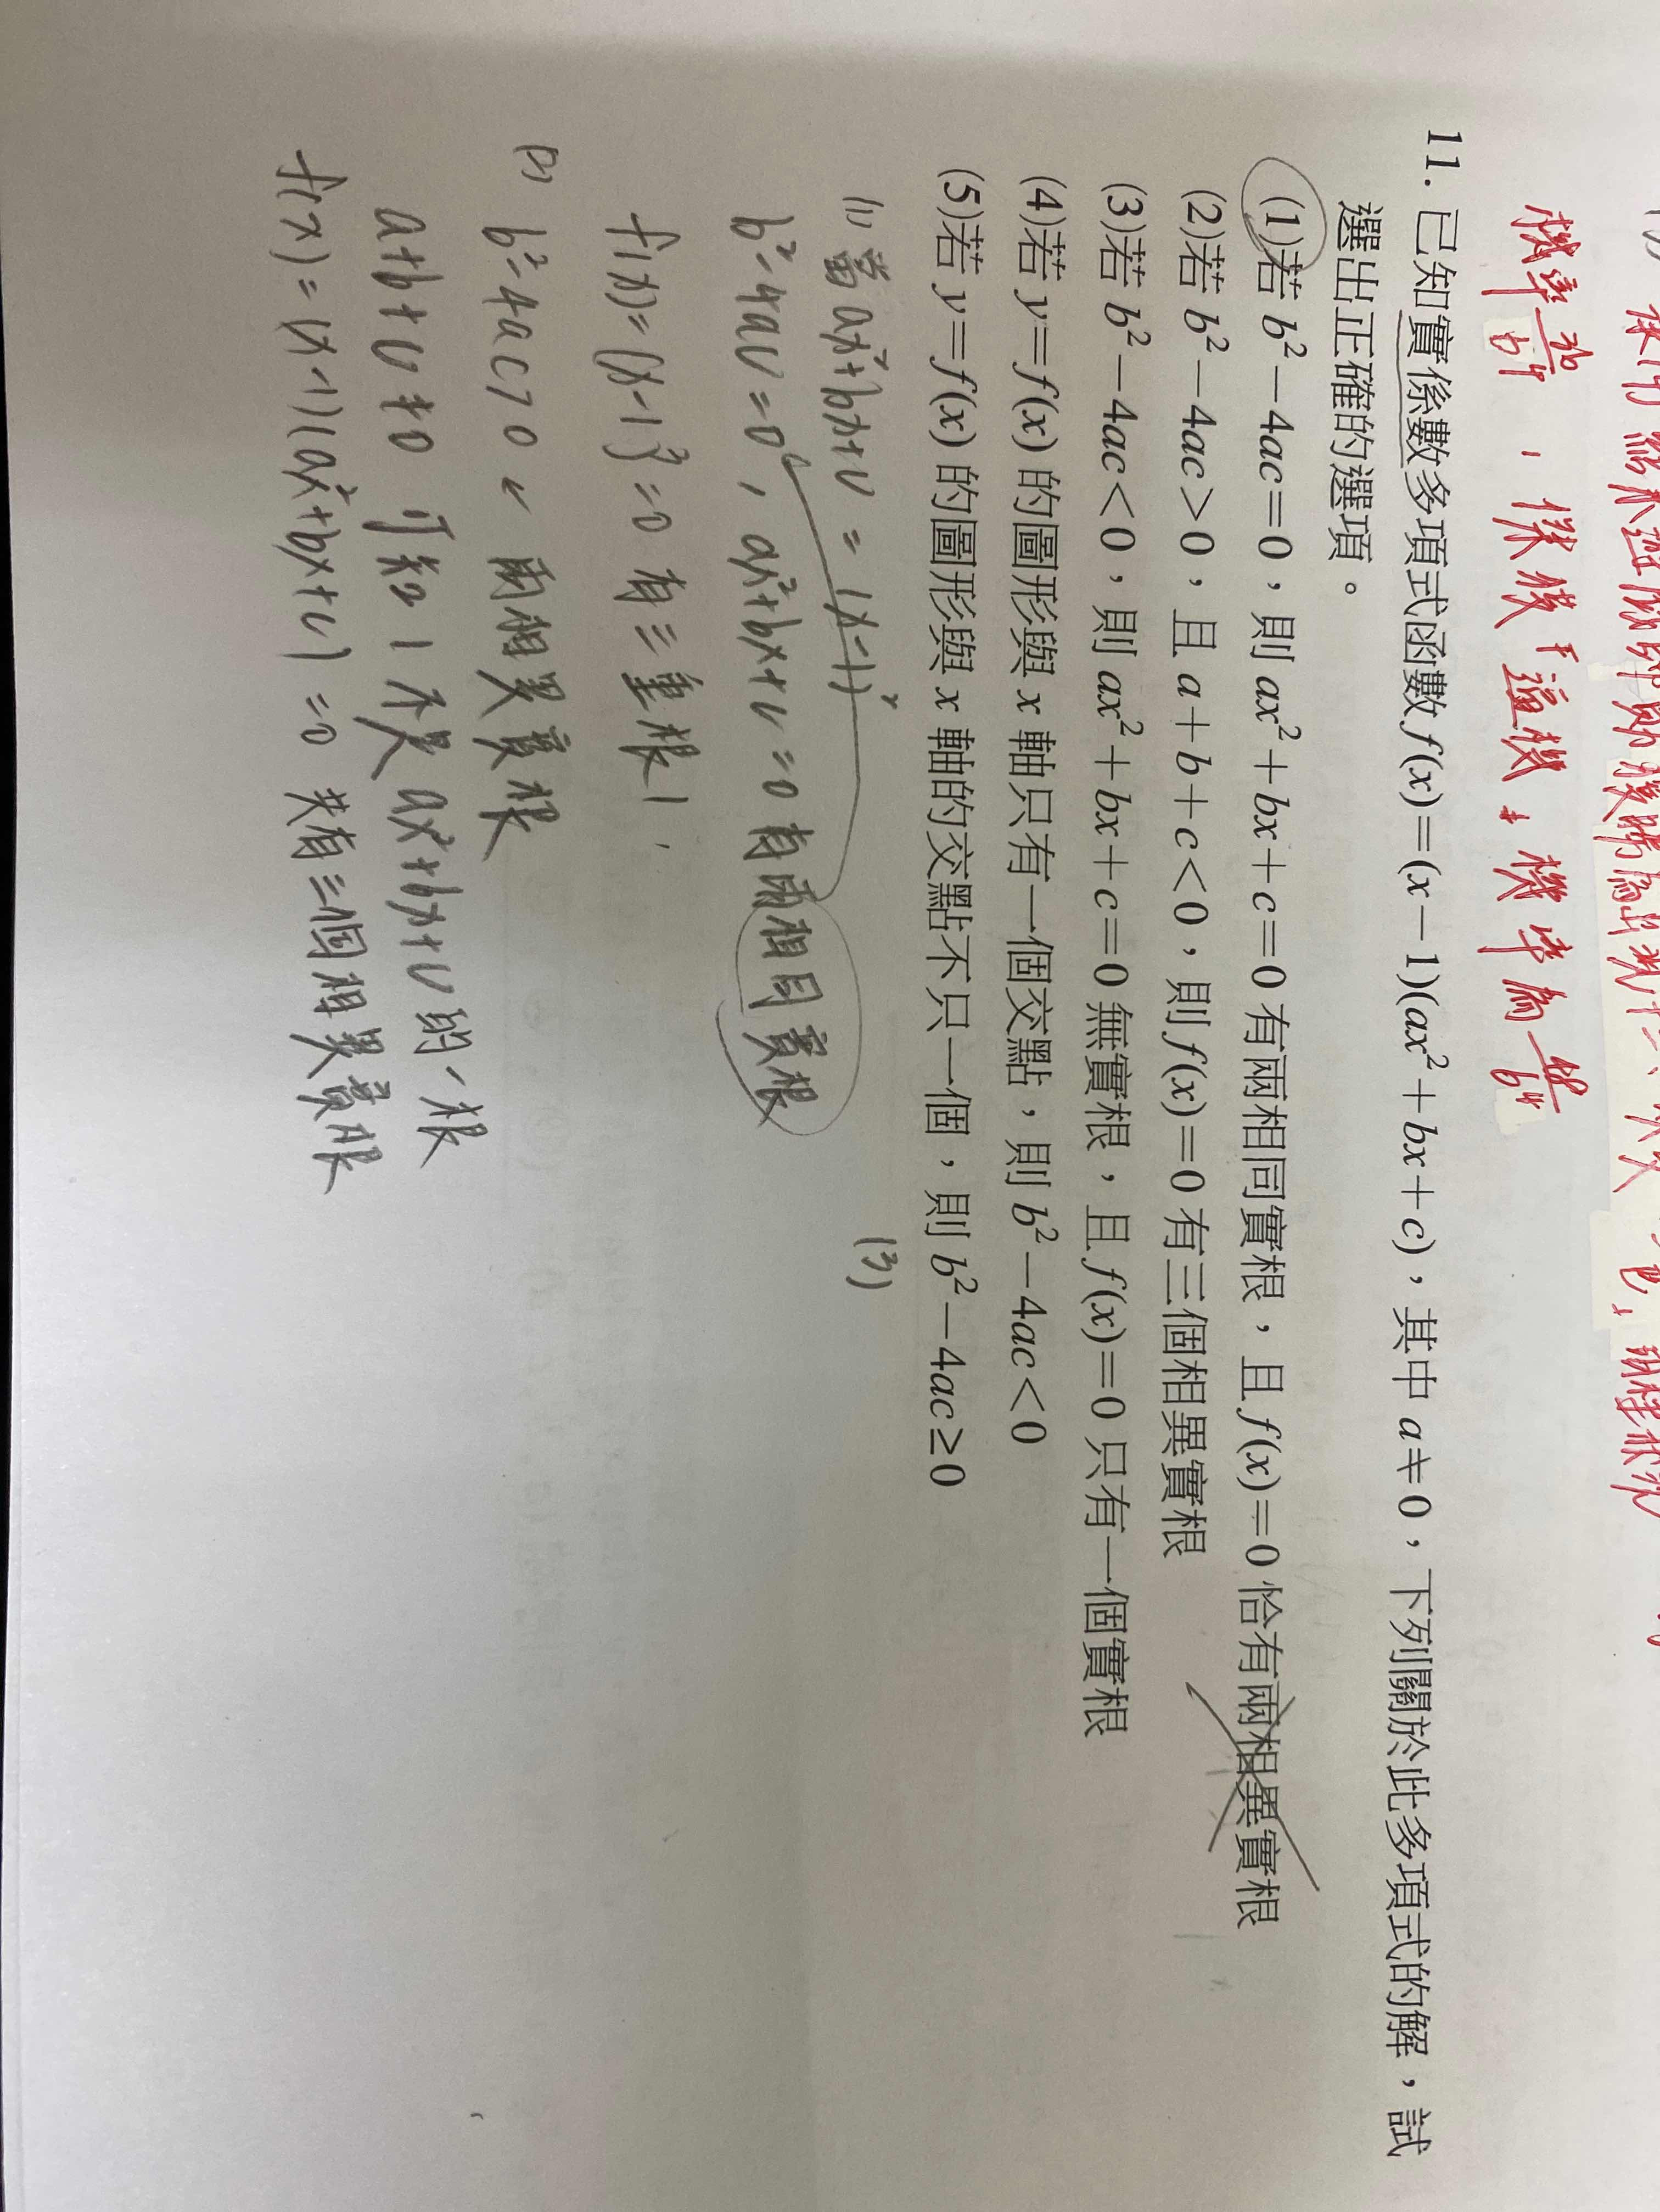 機率為
，僕後手逼機，機率為 48/64
11. 已知實係數多項式函數 f(x)=(x−1)(ax²+bx+c)，其中 a≠0，下列關於此多項式的解，試
選出正確的選項。
(1)若 b²−4ac=0，則 ax²+bx+c=0 有兩相同實根，且 f(x)=0 恰有兩相異實根
(2)若 b²−4ac>0，且 a+b+c<0，則 f(x)=0 有三個相異實根
(3)若 b²−4ac<0，則 ax²+bx+c=0 無實根，且 f(x)=0 只有一個實根
(4)若 y=f(x) 的圖形與 x 軸只有一個交點，則 b²−4ac<0
(5)若 y=f(x) 的圖形與 x 軸的交點不只一個，則 b²−4ac≥0
(1) 當 ax²+bx+c = (x-1)²
b²-4ac=0，ax²+bx+c=0 有兩相同實根
f(x)=(x-1)³=0 有三重根1
(2) b²-4ac>0 兩相異實根
a+b+c≠0 可知1不是 ax²+bx+c 的根
f(x)=(x-1)(ax²+bx+c)=0 共有三個相異實根
(3)